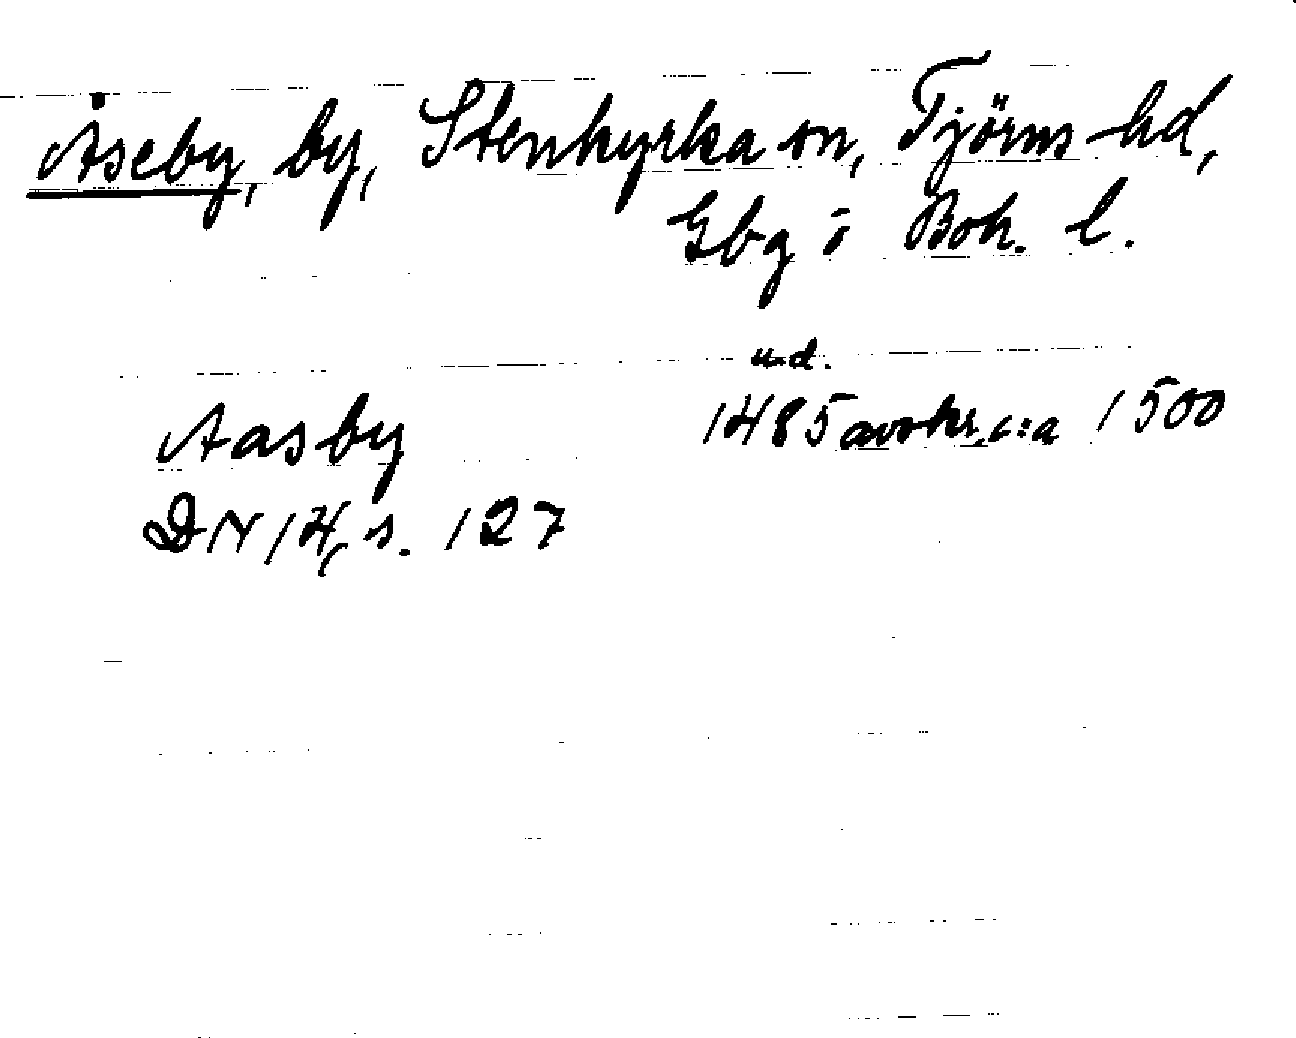 Åseby, by, Stenkyrka sn, Tjörns hd,
Gbg o Boh. l.
u.d.
Aasby 1485 avskr. c:a 1500
DN 14, s. 127